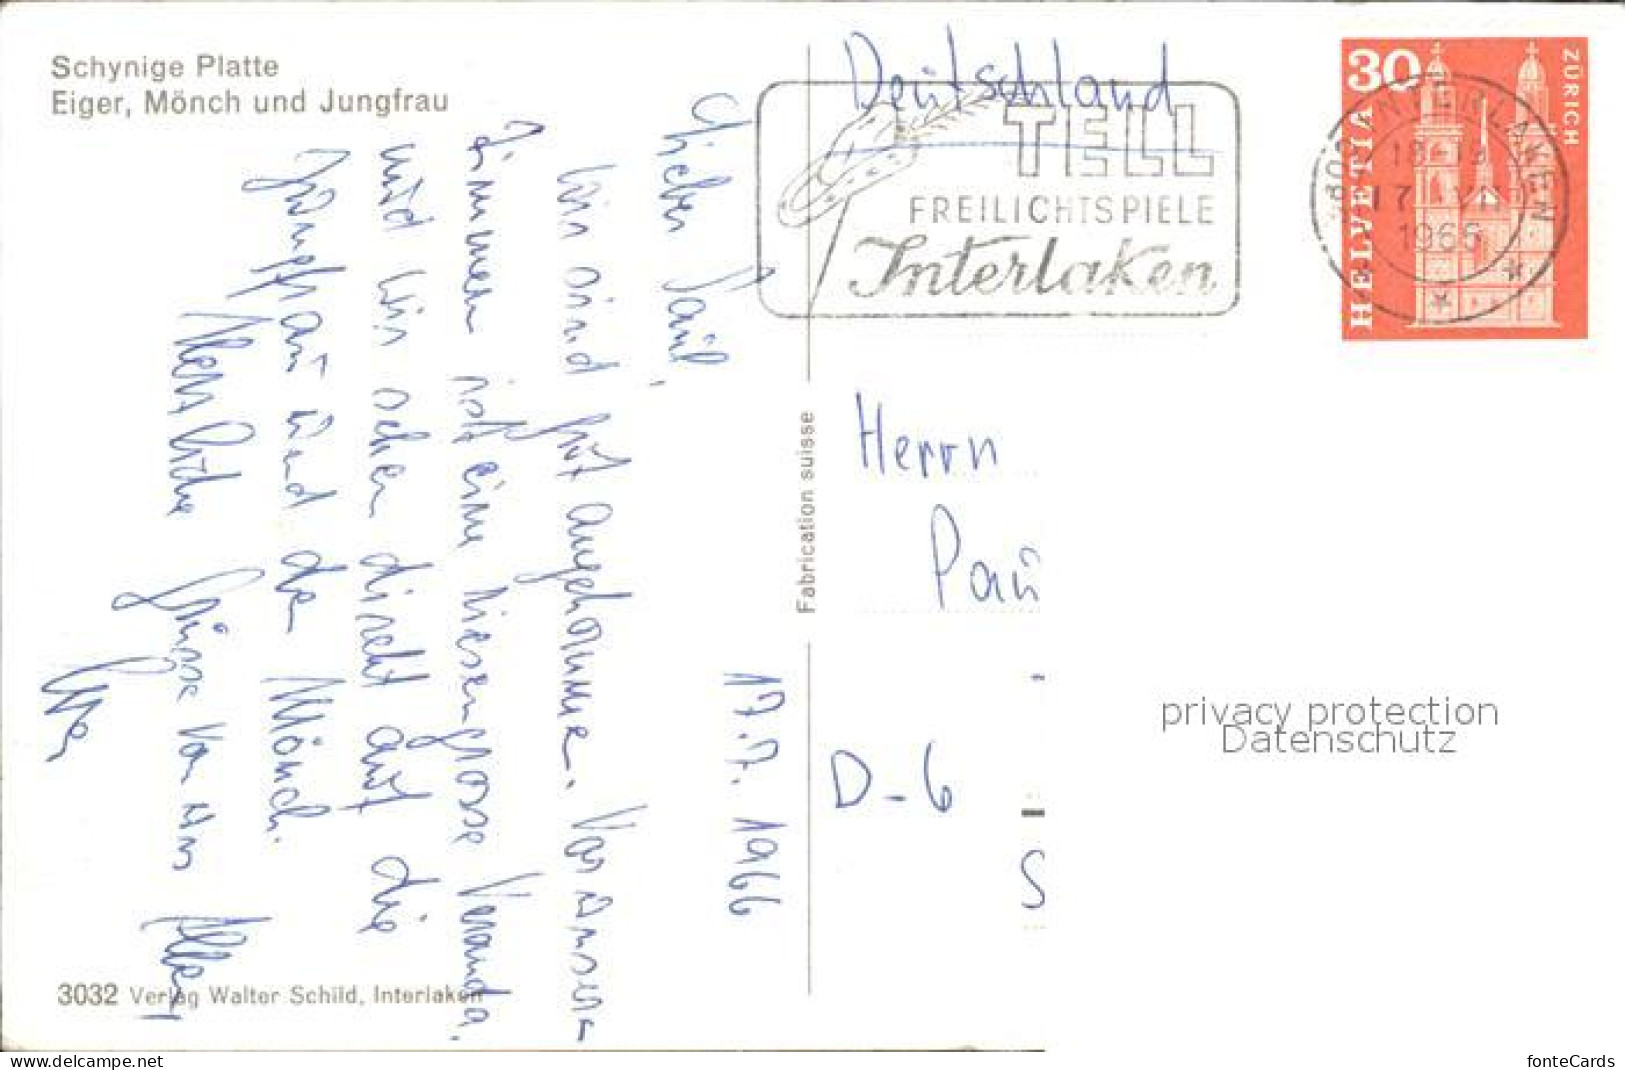 Schynige Platte
Eiger, Mönch und Jungfrau
17.7.1966
Lieber Paul,
Wir sind gut angekommen. Vor unserem
Zimmer ist eine riesengrosse Veranda.
und wir sehen direkt auf die
Jungfrau und den Mönch.
Herzliche Grüsse von uns Allen
3032 Verlag Walter Schild, Interlaken
Fabrication suisse
Deutschland
TELL
FREILICHTSPIELE
Interlaken
30
HELVETIA
ZÜRICH
INTERLAKEN
18-19
17. VII
1966
Herrn
Pau
D-6
S
privacy protection
Datenschutz
www.delcampe.net
fonteCards